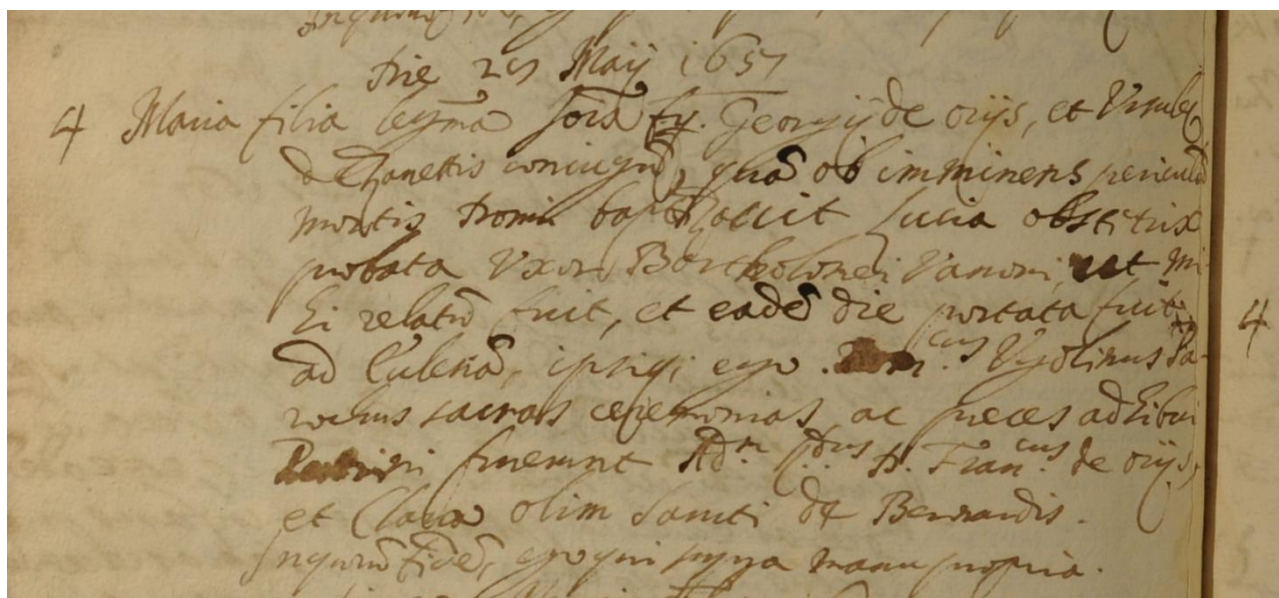 Die 29 Maij 1657
4 Maria filia legma Jois qm. Georgij de orijs, et Ursulę
de Zanettis coniugũ, quã ob imminens periculũ
mortis domi baptizavit Lucia obstetrix
probata Uxor Bartholomei Vanoni, ut mi-
hi relatũ fuit, et eadẽ die portata fuit
ad Eccleiã, ipsiqȝ ego Domcus Ugolinus Pa-
rochus sacras ceremonias ac preces adhibui
Patrini fuerunt Adm Rdus D. Francus de orijs,
et Clara olim Sancti de Bernardis.
In quorũ fidẽ, ego qui supra manu propria.
4